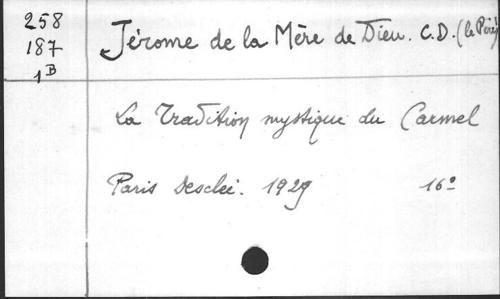 258
187
1B
Jérome de la Mère de Dieu. C.D. (le Père)
La Tradition mystique du Carmel
Paris Desclée. 1929 16°